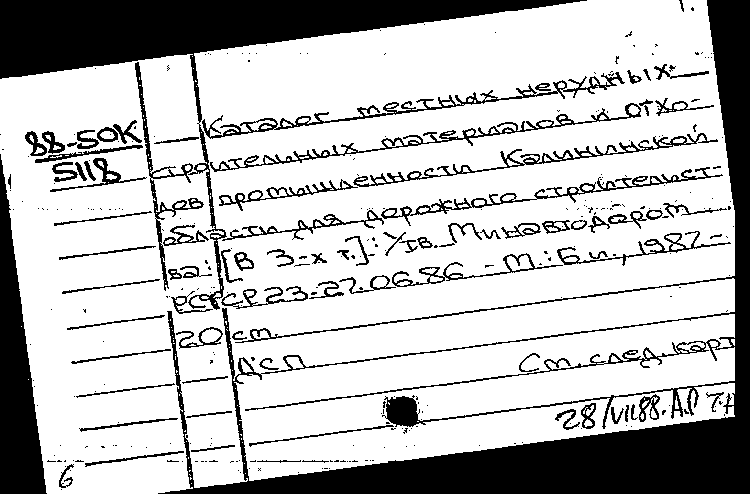 1.
88-50К
5118
Каталог местных нерудных
строительных материалов и отхо-
дов промышленности Калининской
области для дорожного строительст-
ва: [В 3-х т.]: Утв. Минавтодором
РСФСР 23-27.06.86 - М.: Б.и., 1987-
20 см.
ДСП
См. след. карт
28/VII88. А.Р
6